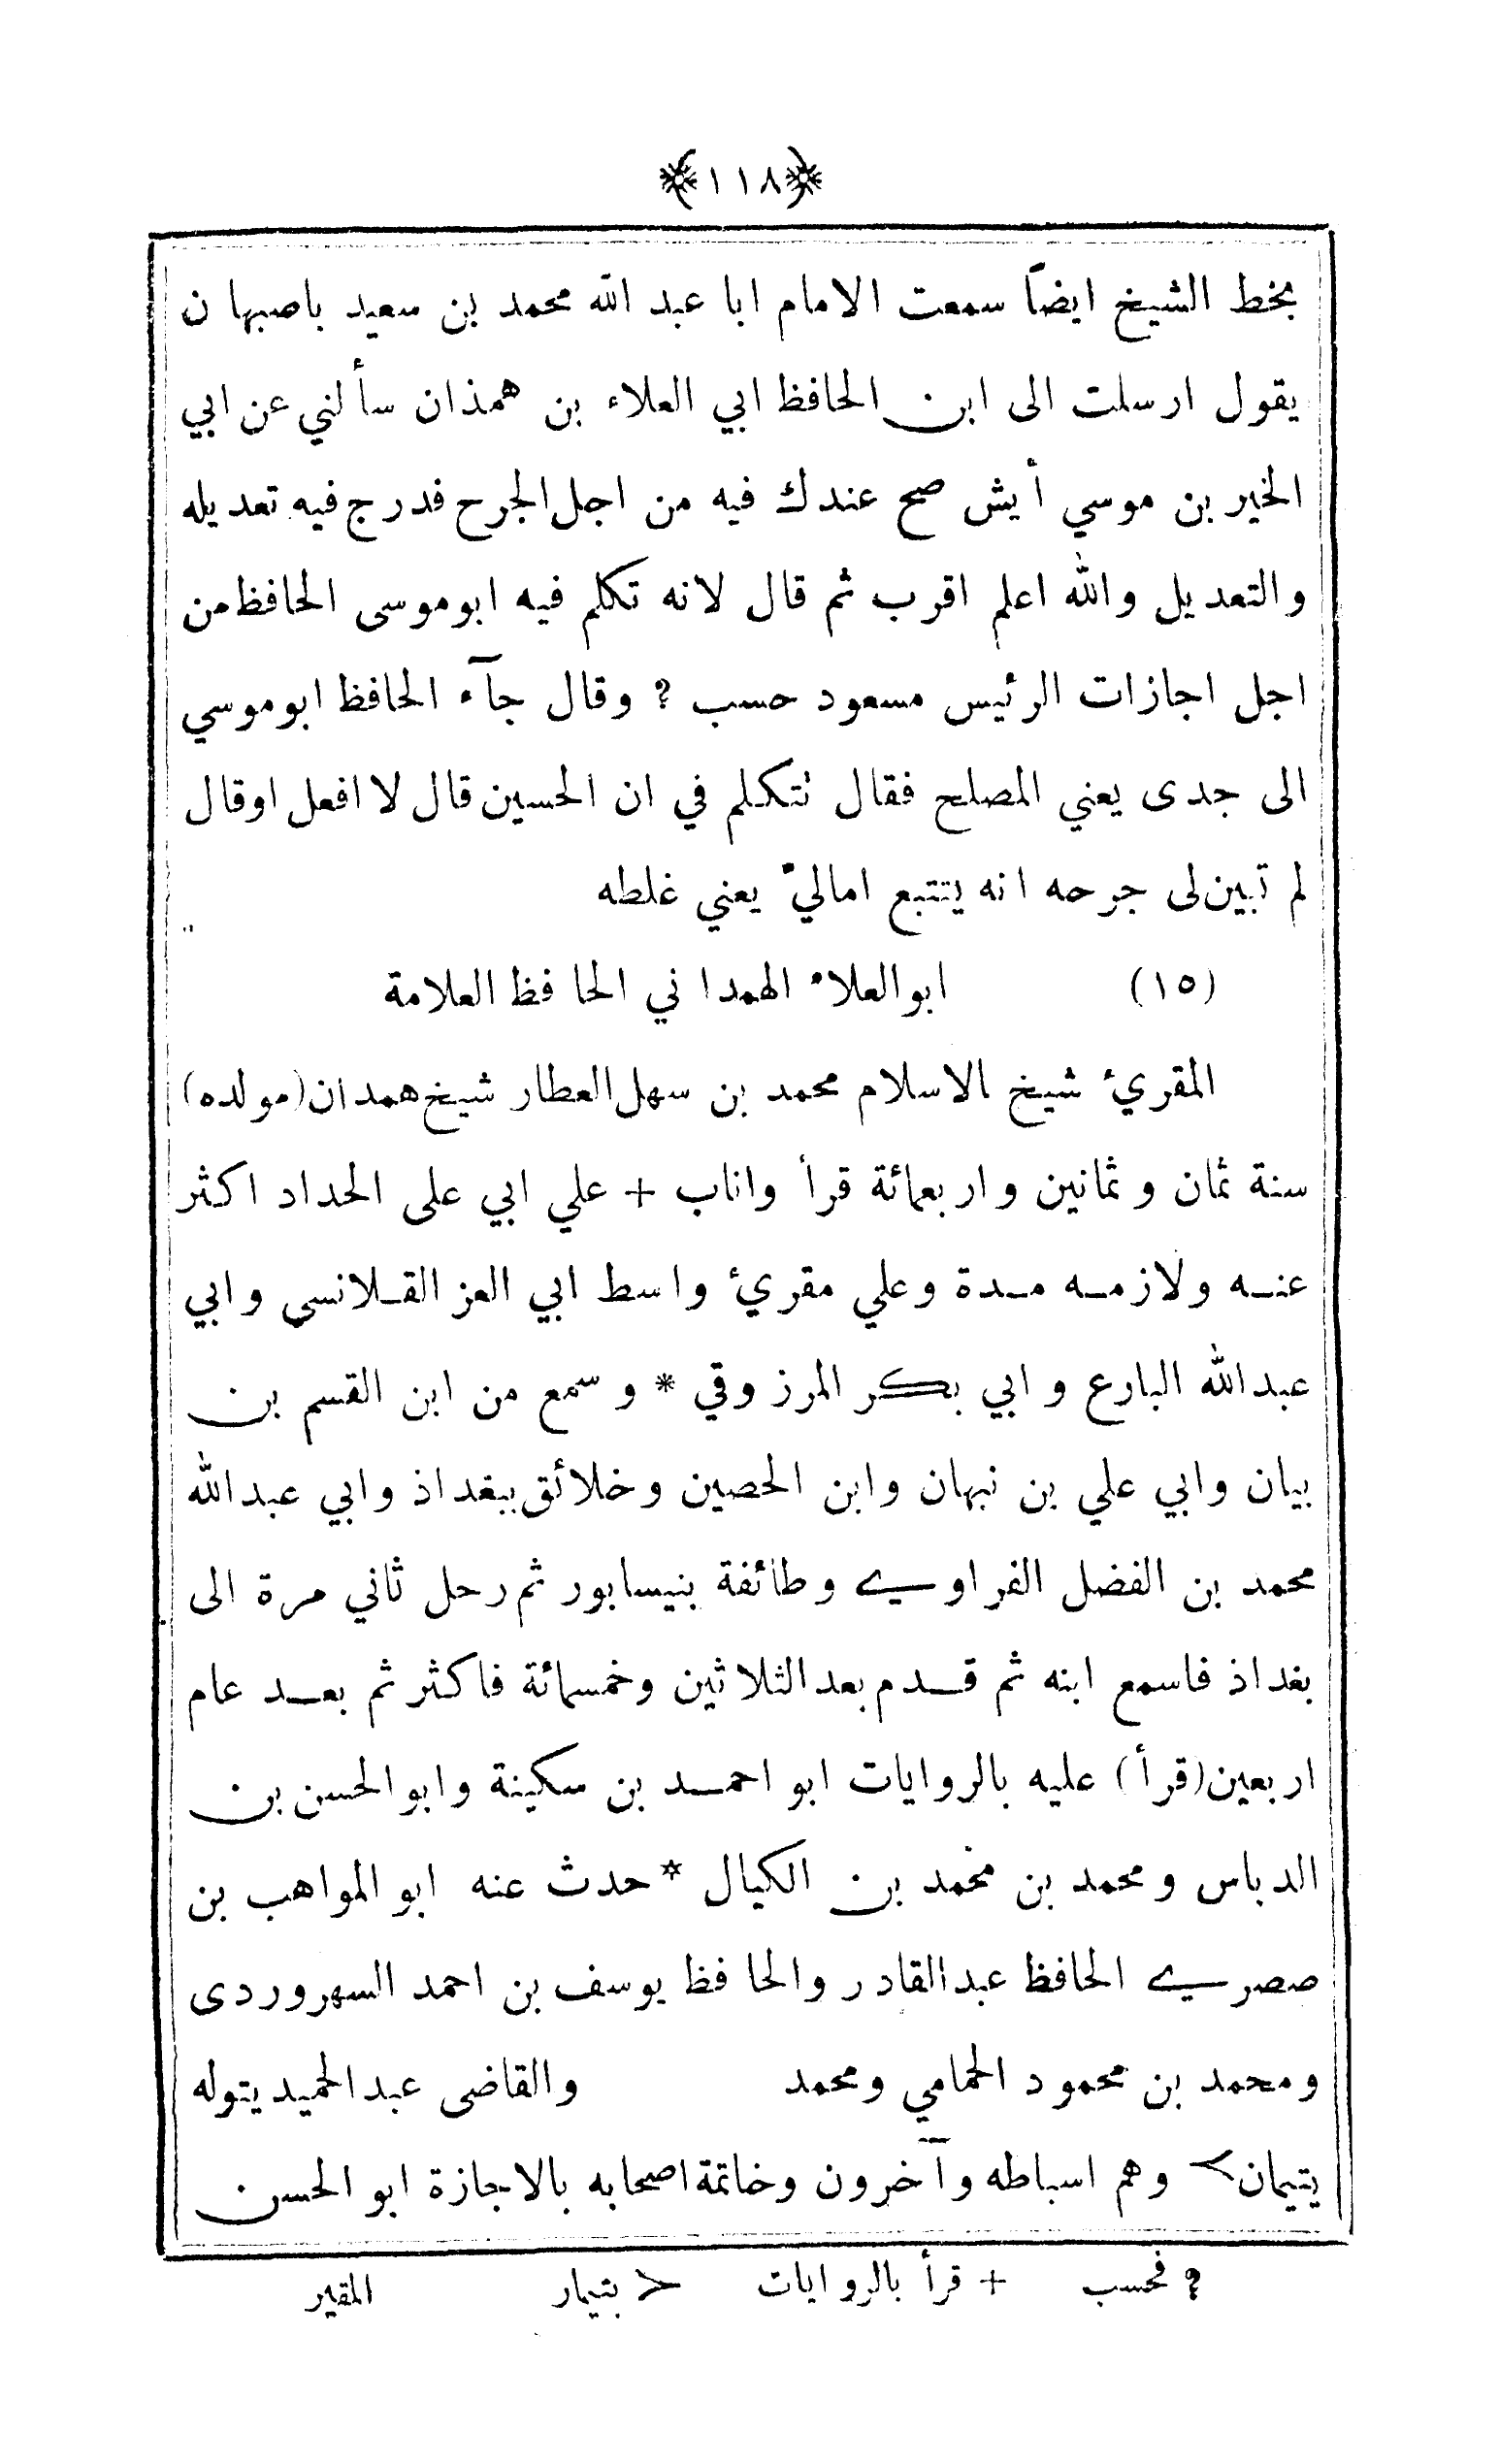 ﴿١١٨﴾
بخط الشيخ ايضاً سمعت الامام ابا عبد الله محمد بن سعيد باصبهان
يقول ارسلت الى ابن الحافظ ابي العلاء بن همذان سألني عن ابي
الخير بن موسي أيش صح عندك فيه من اجل الجرح فدرج فيه تعديله
والتعديل والله اعلم اقرب ثم قال لانه تكلم فيه ابوموسى الحافظ من
اجل اجازات الرئيس مسعود حسب ? وقال جآء الحافظ ابوموسي
الى جدى يعني المصلح فقال نتكلم في ان الحسين قال لا افعل اوقال
لم تبين لى جرحه انه يتتبع امالي يعني غلطه
(١٥) ابوالعلاء الهمداني الحافظ العلامة
المقريء شيخ الاسلام محمد بن سهل العطار شيخ همدان (مولده)
سنة ثمان وثمانين واربعمائة قرأ واناب + علي ابي على الحداد اكثر
عنه ولازمه مدة وعلي مقريء واسط ابي العز القلانسي وابي
عبدالله البارع وابي بكر المرزوقي * وسمع من ابن القسم بن
بيان وابي علي بن نبهان وابن الحصين وخلائق ببغداذ وابي عبدالله
محمد بن الفضل الفراوي وطائفة بنيسابور ثم رحل ثاني مرة الى
بغداذ فاسمع ابنه ثم قدم بعد الثلاثين وخمسمائة فاكثر ثم بعد عام
اربعين (قرأ) عليه بالروايات ابو احمد بن سكينة وابو الحسن بن
الدباس ومحمد بن محمد بن الكيال * حدث عنه ابو المواهب بن
صصري الحافظ عبدالقادر والحافظ يوسف بن احمد السهروردى
ومحمد بن محمود الحمامي ومحمد والقاضى عبدالحميد يتوله
يتيمان > وهم اسباطه وآخرون وخاتمة اصحابه بالاجازة ابو الحسن
? فحسب + قرأ بالروايات > بتيمار المقير